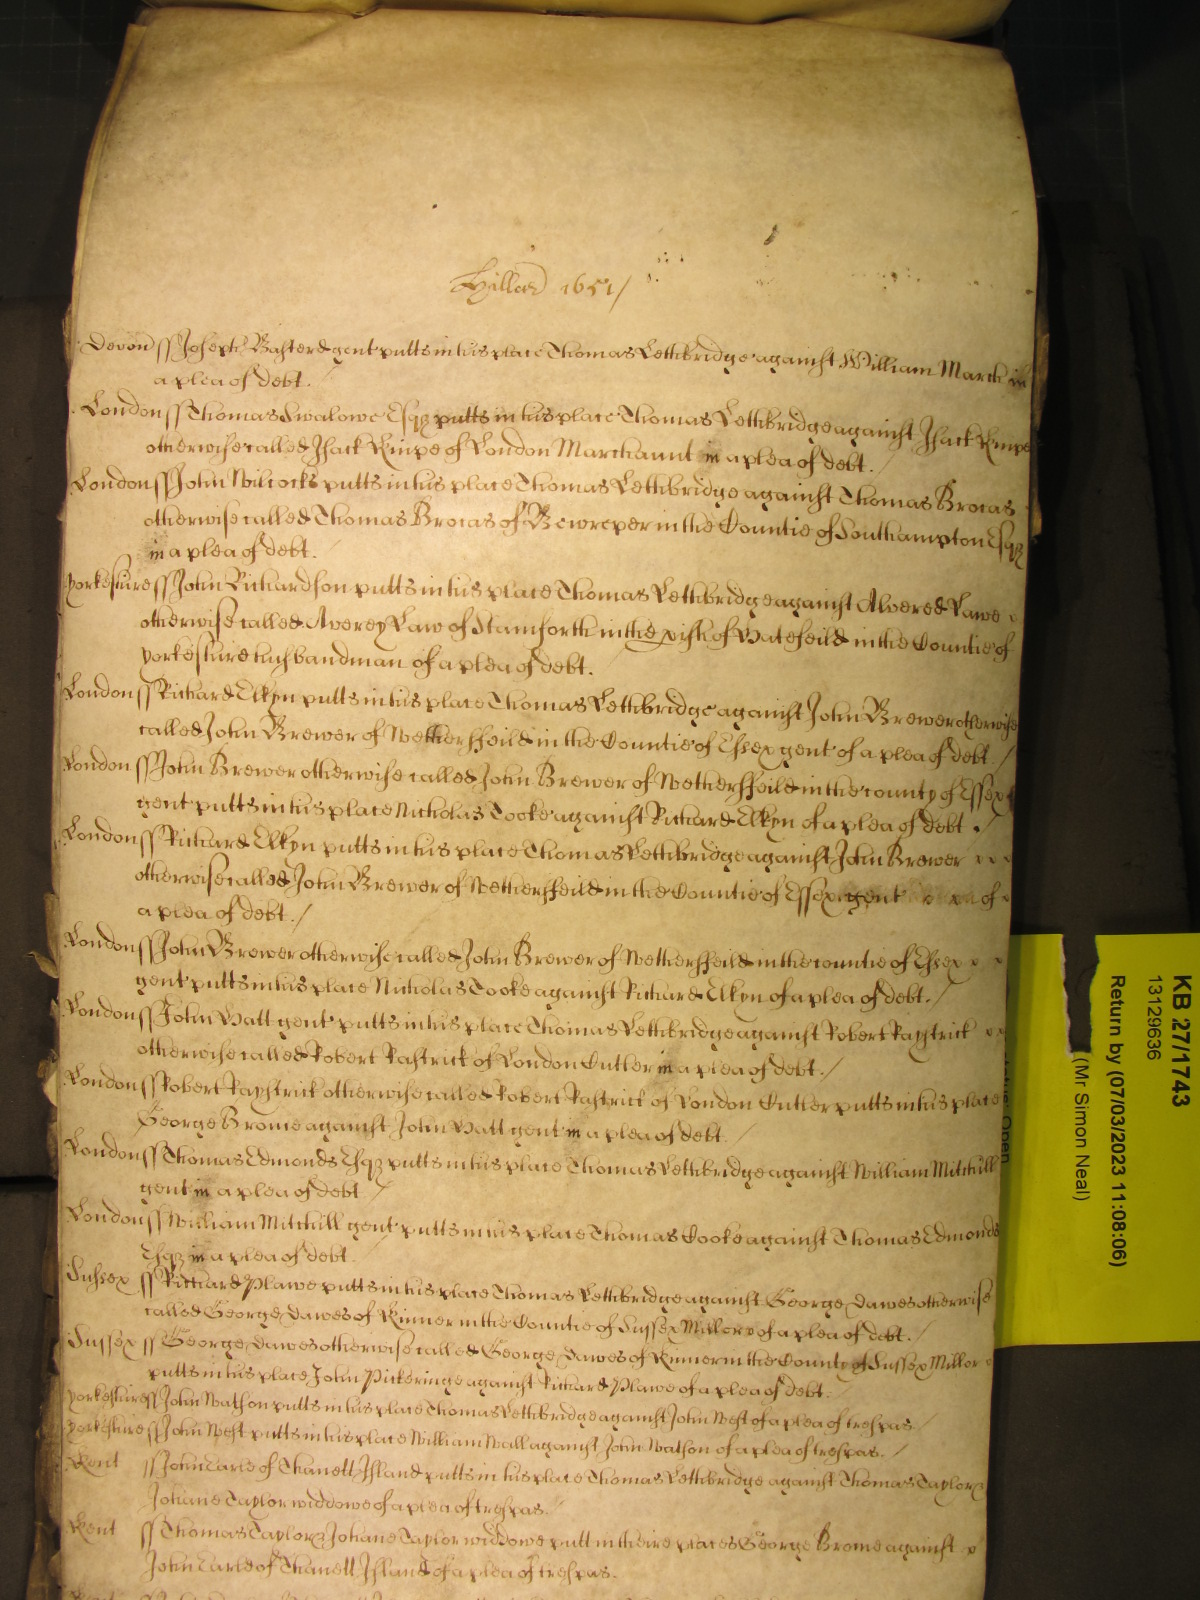 Hillard 1651/
Devon ss Joseph Basterd gent putts in his place Thomas Lethbridge against William March in
a plea of debt.
London ss Thomas Swalowe Esqz putts in his place Thomas Lethbridge against Isack Kempe
otherwise called Isack Kempe of London Marchaunt in a plea of debt. /
London ss John Wilcocks putts in his place Thomas Lethbridge against Thomas Brocas
otherwise called Thomas Brocas of Bewreper in the Countie of Southampton Esqz
in a plea of debt.
Yorkeshire ss John Richardson putts in his place Thomas Lethbridge against Alvered Lawe
otherwise called Averey Law of Stamforth in the pish of Hatefeild in the Countie of
Yorkeshire husbandman of a plea of debt.
London ss Richard Elkyn putts in his place Thomas Lethbridge against John Brewer otherwise
called John Brewer of Wethersfeild in the Countie of Essex gent of a plea of debt. /
London ss John Brewer otherwise called John Brewer of Wethersfeild in the county of Essex
gent putts in his place Nicholas Cooke against Richard Elkyn of a plea of debt. /
London ss Richard Elkyn putts in his place Thomas Lethbridge against John Brewer
otherwise called John Brewer of Wethersfeild in the Countie of Essex gent of
a plea of debt. /
London ss John Brewer otherwise called John Brewer of Wethersfeild in the countie of Essex
gent putts in his place Nicholas Cooke against Richard Elkyn of a plea of debt. /
London ss John Hatt gent putts in his place Thomas Lethbridge against Robert Raystrick
otherwise called Robert Rastrick of London Cutler in a plea of debt. /
London ss Robert Raystrick otherwise called Robert Rastrick of London Cutler putts in his place
George Brome against John Hatt gent in a plea of debt. /
London ss Thomas Edmonds Esqz putts in his place Thomas Lethbridge against William Mitchull
gent in a plea of debt /
London ss William Mitchull gent putts in his place Thomas Cooke against Thomas Edmonds
Esqz in a plea of debt.
Sussex ss Richard Plawe putts in his place Thomas Lethbridge against George Dawes otherwise
called George Dawes of Kinner in the Countie of Sussex Miller of a plea of debt. /
Sussex ss George Dawes otherwise called George Dawes of Kinner in the County of Sussex Miller
putts in his place John Pickeringe against Richard Plawe of a plea of debt. /
Yorkeshire ss John Watson putts in his place Thomas Lethbridge against John West of a plea of trespas /
Yorkeshire ss John West putts in his place William Wall against John Watson of a plea of trespas. /
Kent ss John Earle of Thanett Island putts in his place Thomas Lethbridge against Thomas Taylor &
Johane Taylor widdowe of a plea of trespas.
Kent ss Thomas Taylor & Johane Taylor widdowe putt in theire places George Brome against
John Earle of Thanett Island of a plea of trespas.
KB 27/1743
13129636
Return by (07/03/2023 11:08:06)
(Mr Simon Neal)
Open